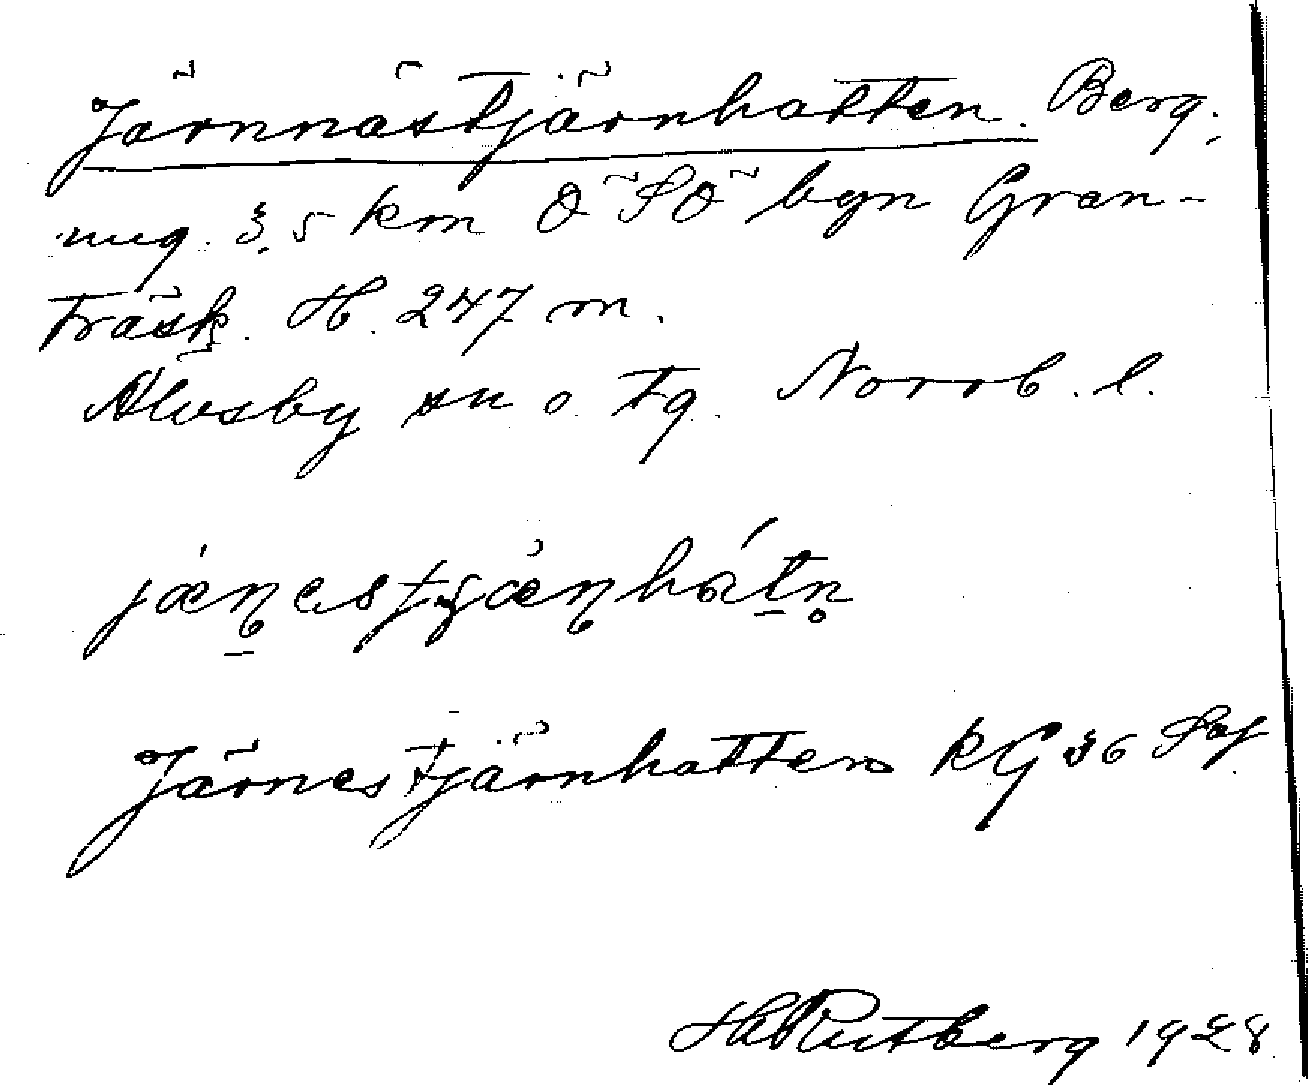 Järnnästjärnhatten. Berg,
ung. 3,5 km Ö SÖ byn Gran-
träsk. H. 247 m.
Älvsby sn o. tg. Norrb. l.
Järnestjärnhatten kG 36 Söf
H Rutberg 1928